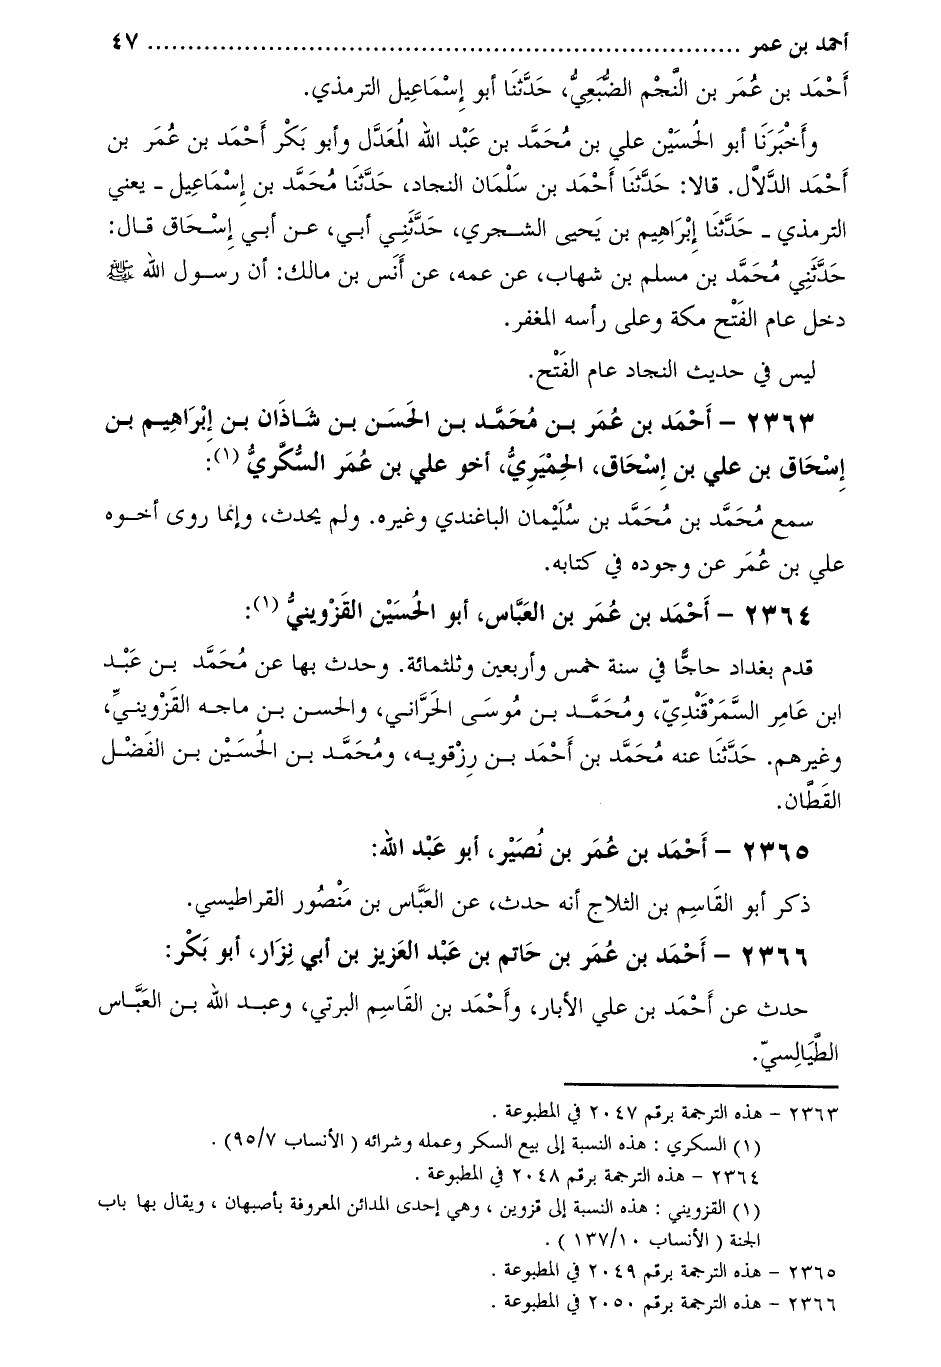 أحمد بن عمر ........................................................................ ٤٧
أَحْمَد بن عُمَر بن النَّجْم الضُّبَعِيُّ، حَدَّثنَا أبو إسْمَاعِيل الترمذي.
وأَخْبَرَنَا أبو الحُسَيْن علي بن مُحَمَّد بن عَبْد الله المُعَدَّل وأبو بَكْر أَحْمَد بن عُمَر بن
أَحْمَد الدَّلاَّل. قالا: حَدَّثنَا أَحْمَد بن سَلْمَان النجاد، حَدَّثنَا مُحَمَّد بن إِسْمَاعيل ـ يعني
الترمذي ـ حَدَّثنَا إِبْرَاهِيم بن يَحيى الشـجري، حَدَّثَنِي أبي، عـن أبي إِسْـحَاق قـال:
حَدَّثَنِي مُحَمَّد بن مسلم بن شهاب، عن عمه، عن أَنَس بن مالك: أن رسـول الله ﷺ
دخل عام الفَتْح مكة وعلى رأسه المغفر.
ليس في حديث النجاد عام الفَتْح.
٢٣٦٣ – أَحْمَد بن عُمَر بـن مُحَمَّـد بـن الحَسَن بـن شَـاذَان بـن إِبْرَاهِيـم بـن
إِسْحَاق بن علي بن إِسْحَاق، الحِمْيَرِيُّ، أخو علي بن عُمَر السُّكَّرِيُّ (١):
سمع مُحَمَّد بن مُحَمَّد بن سُلَيْمان الباغندي وغيره. ولم يحدث، وإنما روى أخـوه
علي بن عُمَر عن وجوده في كتابه.
٢٣٦٤ – أَحْمَد بن عُمَر بن العَبَّاس، أبو الحُسَيْن القَزْوينيُّ (١):
قدم بغداد حاجًّا في سنة خمس وأربعين وثلثمائة. وحدث بها عن مُحَمَّد بـن عَبْـد
ابن عَامِر السَّمَرْقَنْدِيّ، ومُحَمَّـد بـن مُوسَى الحَرَّاني، والحسن بـن ماجـه القَزْوينيِّ،
وغيرهـم. حَدَّثنَا عنه مُحَمَّد بن أَحْمَد بـن رِزْقويـه، ومُحَمَّـد بـن الحُسَيْن بـن الفَضْـل
القَطَّان.
٢٣٦٥ – أَحْمَد بن عُمَر بن نُصَيْر، أبو عَبْد الله:
ذكر أبو القَاسِم بن الثلاج أنه حدث، عن العَبَّاس بن مَنْصُور القراطيسي.
٢٣٦٦ – أَحْمَد بن عُمَر بن حَاتم بن عَبْد العَزيز بن أبي نِزَار، أبو بَكْر:
حدث عن أَحْمَد بن علي الأبار، وأَحْمَد بن القَاسِم البرتي، وعبـد الله بـن العَبَّـاس
الطَّيَالِسيّ.
٢٣٦٣ – هذه الترجمة برقم ٢٠٤٧ في المطبوعة .
(١) السكري : هذه النسبة إلى بيع السكر وعمله وشرائه ( الأنساب ٩٥/٧) .
٢٣٦٤ – هذه الترجمة برقم ٢٠٤٨ في المطبوعة .
(١) القزويني : هذه النسبة إلى قزوين ، وهي إحدى المدائن المعروفة بأصبهان ، ويقال بها باب
الجنة ( الأنساب ١٣٧/١٠ ) .
٢٣٦٥ – هذه الترجمة برقم ٢٠٤٩ في المطبوعة .
٢٣٦٦ – هذه الترجمة برقم ٢٠٥٠ في المطبوعة .